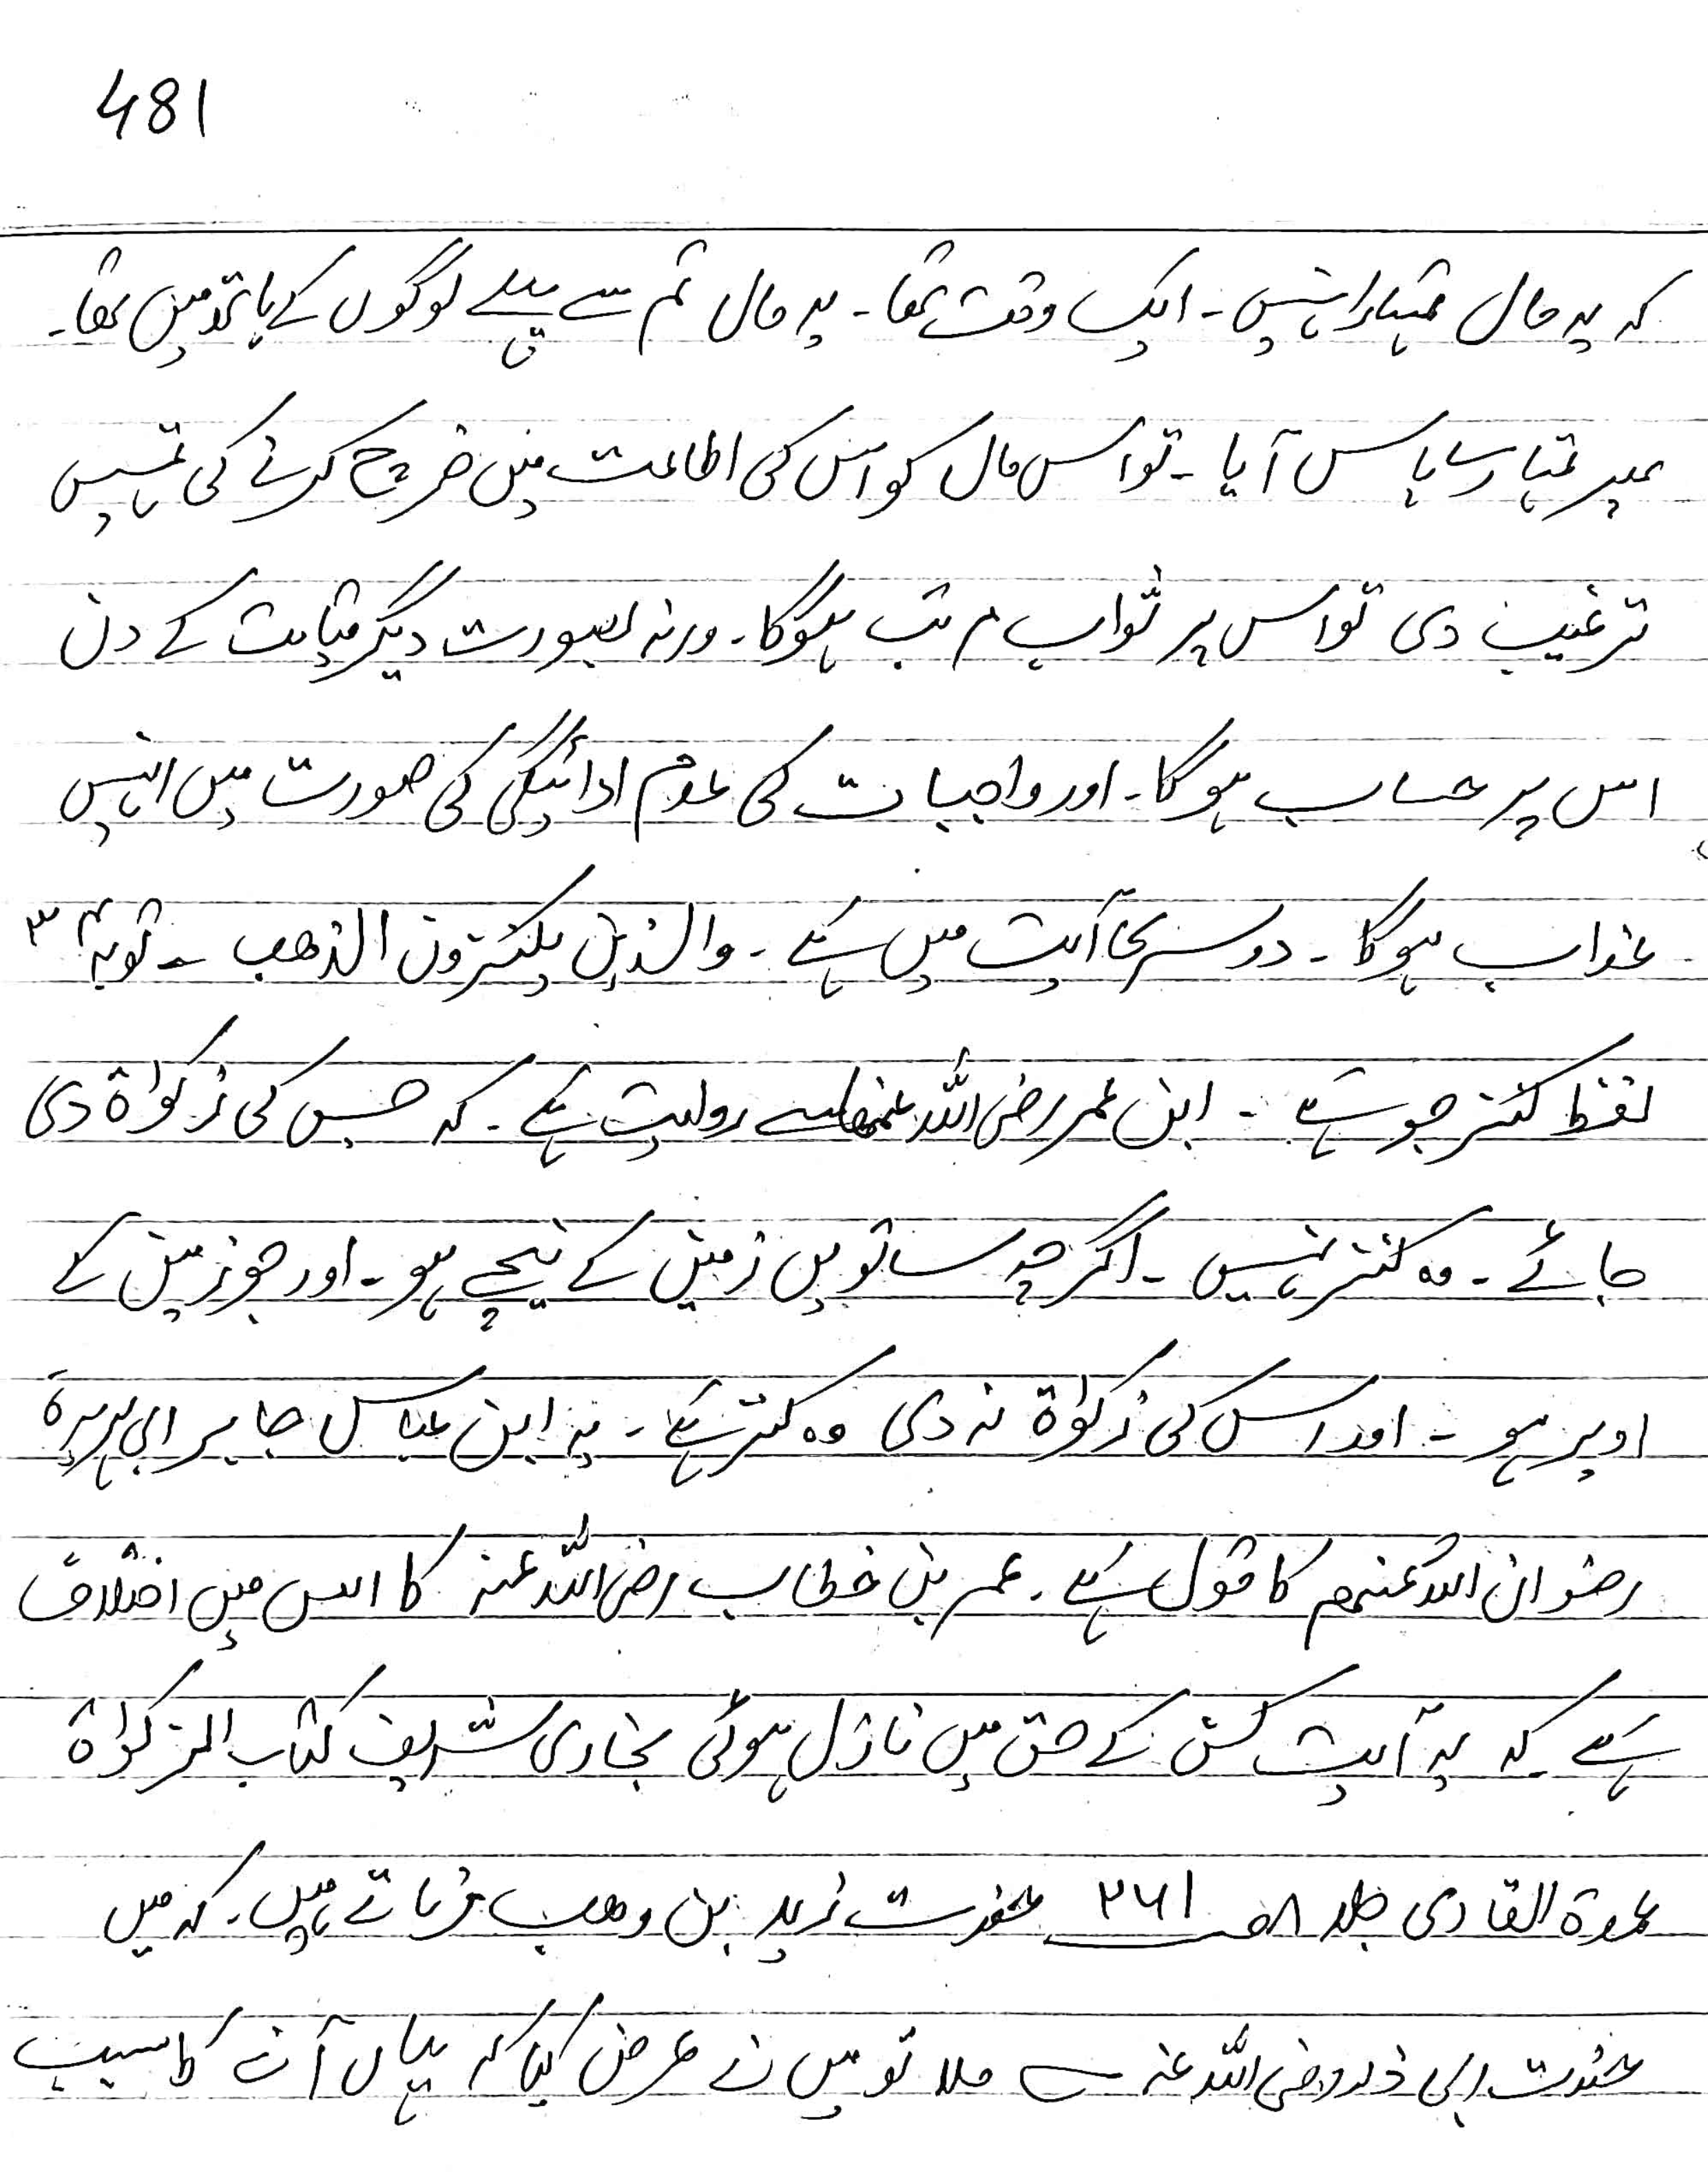 481
کہ یہ مال تمہارا نہیں ۔ ایک وقت تھا ۔ یہ مال تم سے پہلے لوگوں کے ہاتھ میں تھا ۔
پھر تمہارے پاس آیا ۔ تو اس مال کو اس کی اطاعت میں خرچ کرنے کی تمہیں
ترغیب دی تو اس پر ثواب مرتب ہوگا ۔ ورنہ بصورت دیگر قیامت کے دن
اس پر حساب ہوگا ۔ اور واجبات کی عدم ادائیگی کی صورت میں انہیں
عذاب ہوگا ۔ دوسری آیت میں ہے ۔ والذین یکنزون الذھب ۔ توبہ ۳۴
لفظ کنز جو ہے ۔ ابن عمر رضی اللہ عنھما سے روایت ہے ۔ کہ جس کی زکواۃ دی
جائے ۔ وہ کنز نہیں ۔ اگرچہ ساتویں زمین کے نیچے ہو ۔ اور جو زمین کے
اوپر ہو ۔ اور اس کی زکواۃ نہ دی وہ کنز ہے ۔ یہ ابن عباس جابر ابی ہریرۃ
رضوان اللہ عنہم کا قول ہے ۔ عمر بن خطاب رضی اللہ عنہ کا اس میں اختلاف
ہے کہ یہ آیت کس کے حق میں نازل ہوئی بخاری شریف کتاب الزکواۃ
عمدۃ القاری جلد ۸ ص ۲۶۱ حضرت زید بن وھب فرماتے ہیں ۔ کہ میں
حضرت ابی ذر رضی اللہ عنہ سے ملا تو میں نے عرض کیا کہ یہاں آنے کا سبب